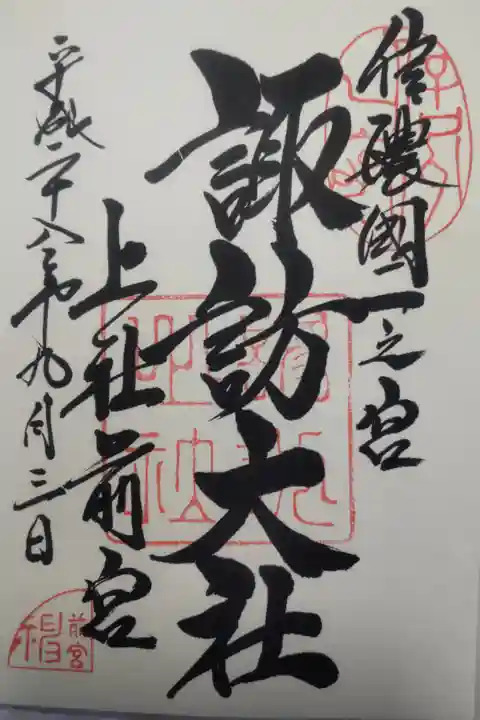 信濃國一之宮
諏訪大社
上社前宮
平成二十八年九月三日
前宮